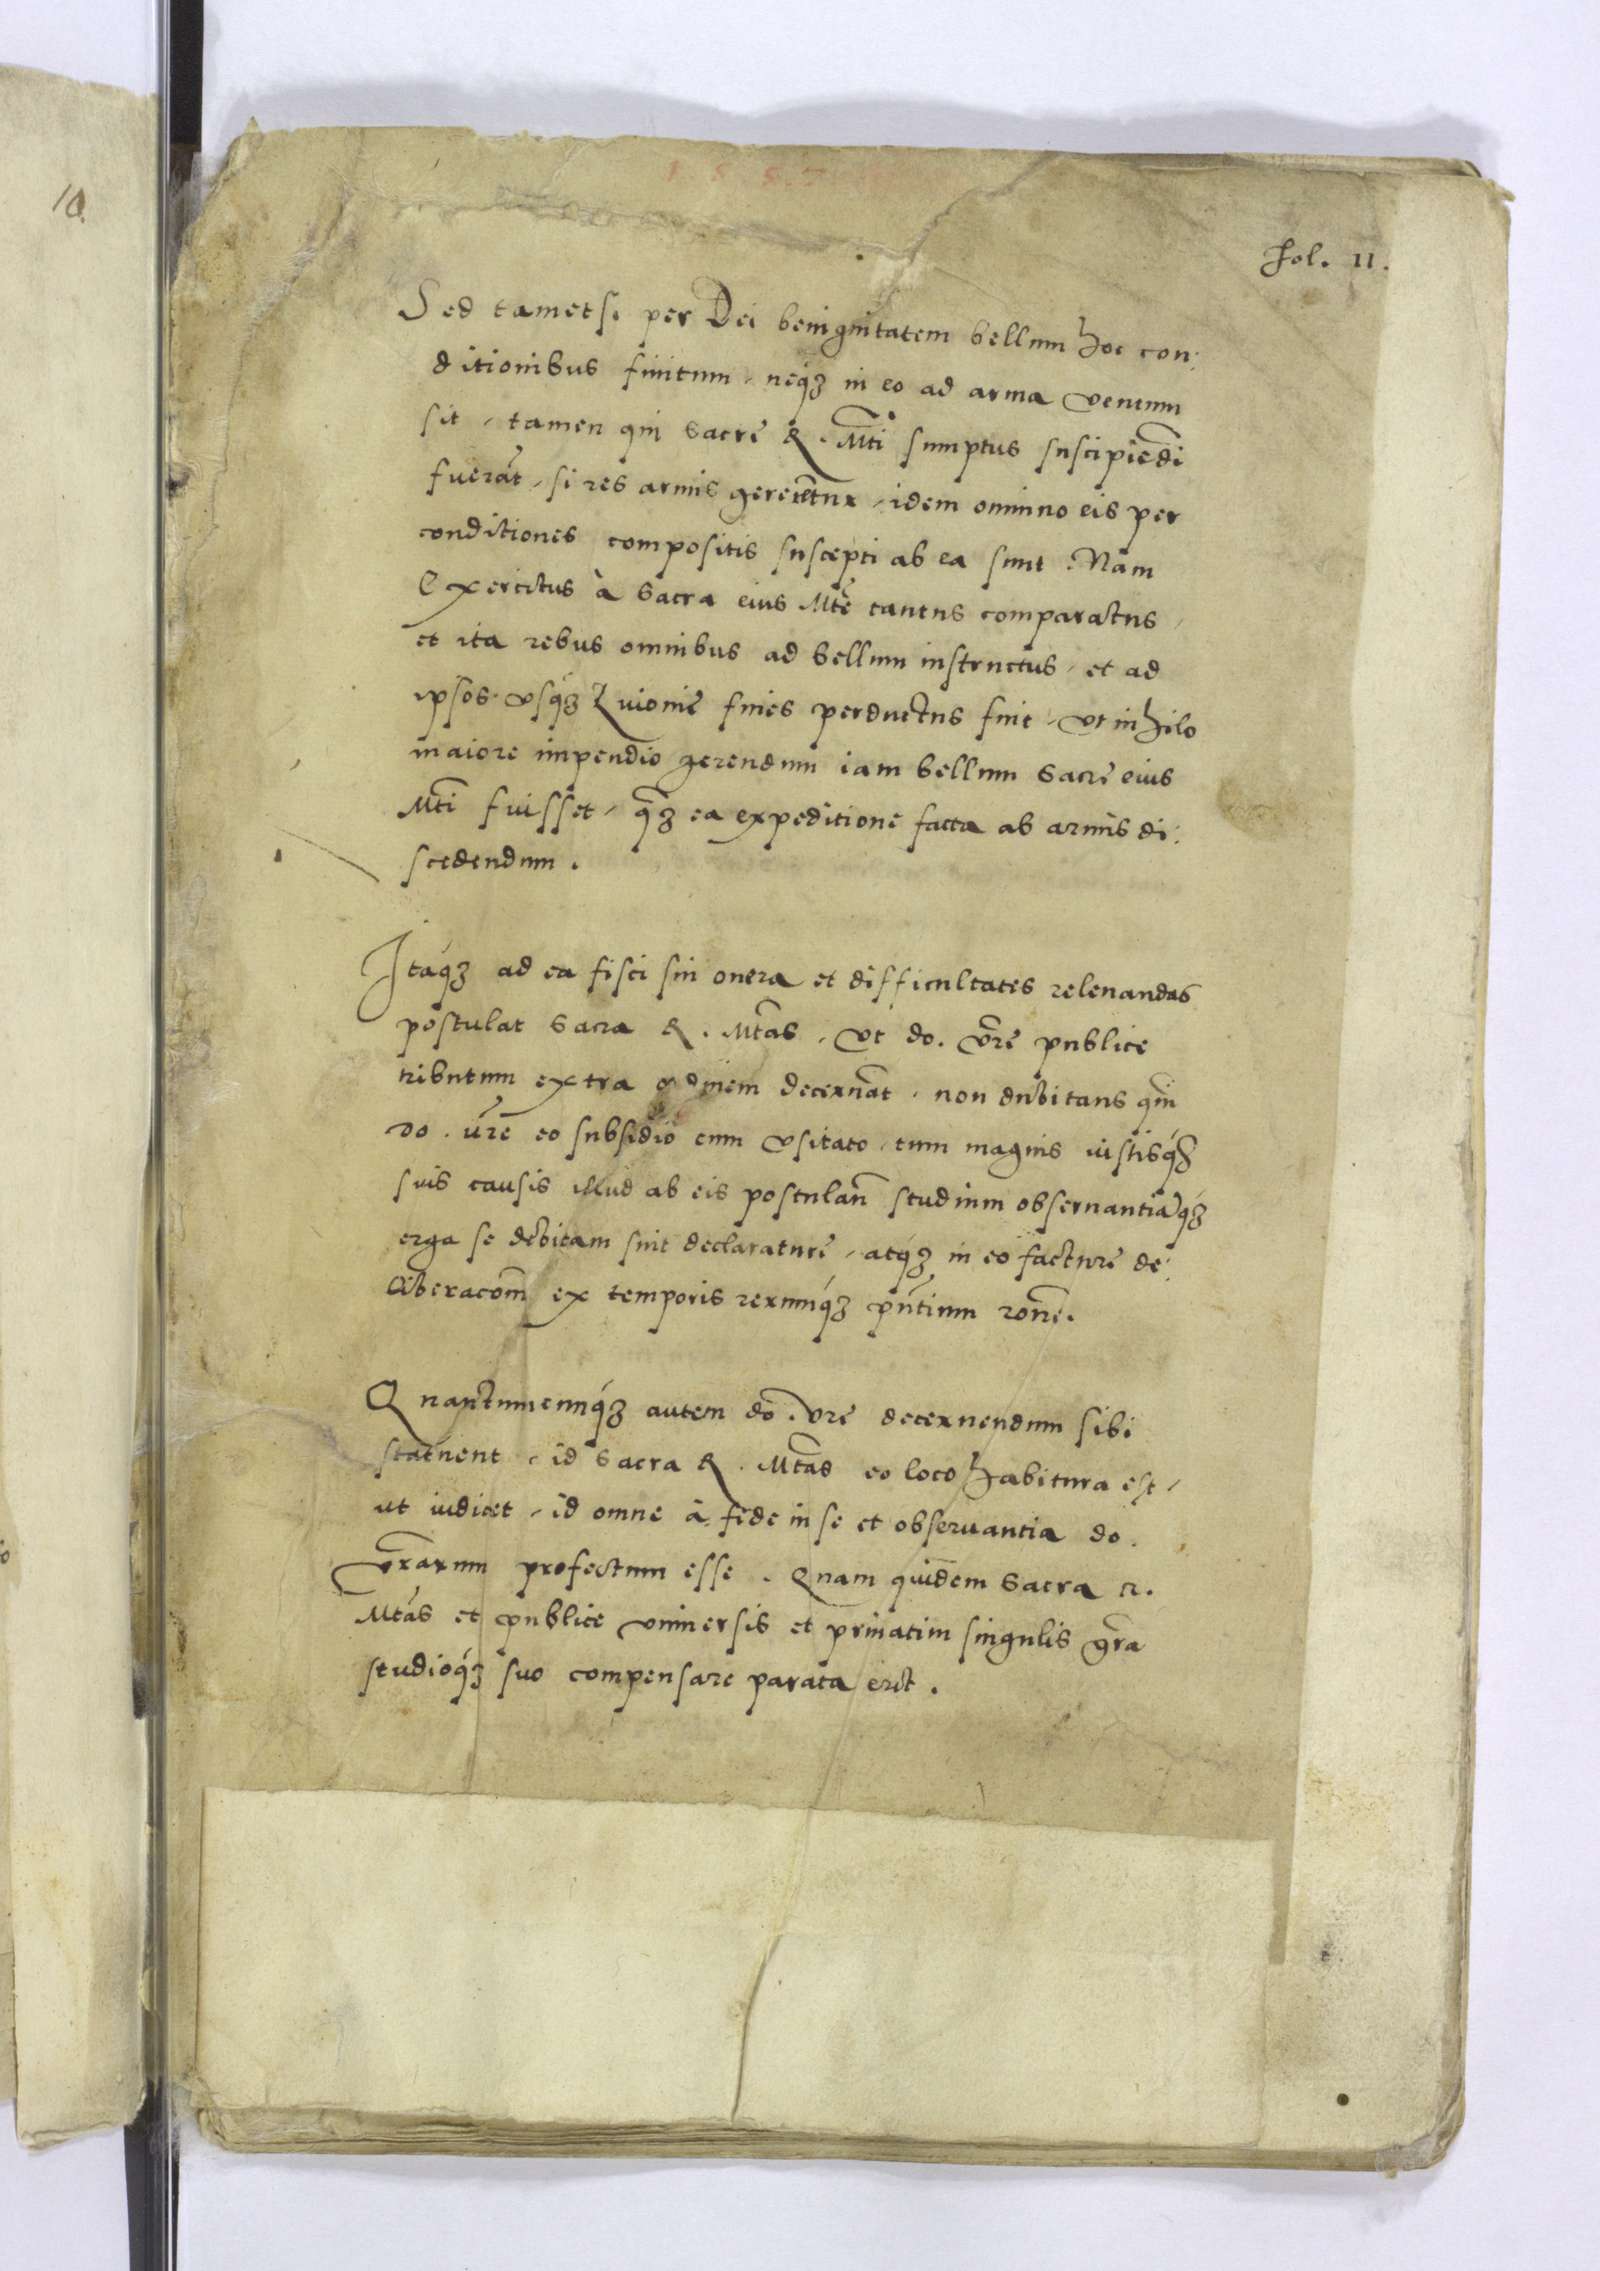 10
Fol. 11.
Sed tametsi per Dei benignitatem bellum hoc con:
ditionibus finitum, neq3 in eo ad arma ventum
sit, tamen qui sacrę R. Mti sumptus suscipiēdi
fuerāt, si res armis gereretur, idem omnino eis per
conditiones compositis suscepti ab ea sunt. Nam
Exercitus à Sacra eius Mte tantus comparatus,
et ita rebus omnibus ad bellum instructus, et ad
ipsos usq3 Livonię fines perductus fuit, ut nihilo
maiore impendio gerendum iam bellum Sacrę eius
Mti fuisset, q3 ea expeditione facta ab armis di:
scedendum.
Itaq3 ad ea fisci sui onera et difficultates relevandas
postulat Sacra R. Mtas, ut do. vrę publice
tributum extra ordinem decernāt, non dubitans quin
do. vrę eo subsidio cum usitato, tum magnis iustisq3
suis causis illud ab eis postulan̄ studium observantiāq3
erga se debitam sint declaraturę, atq3 in eo facturę de:
liberacōm ex temporis rerumq3 pn̄tium rōne.
Quantumcunq3 autem do. vrę decernendum sibi
statuent, id Sacra R. Mtas eo loco habitura est,
ut iudicet, id omne à fide in se et observantia do.
vrārum profectum esse. Quam quidem Sacra R.
Mtas et publice universis et privatim singulis gr̄a
studioq3 suo compensare parata erit.